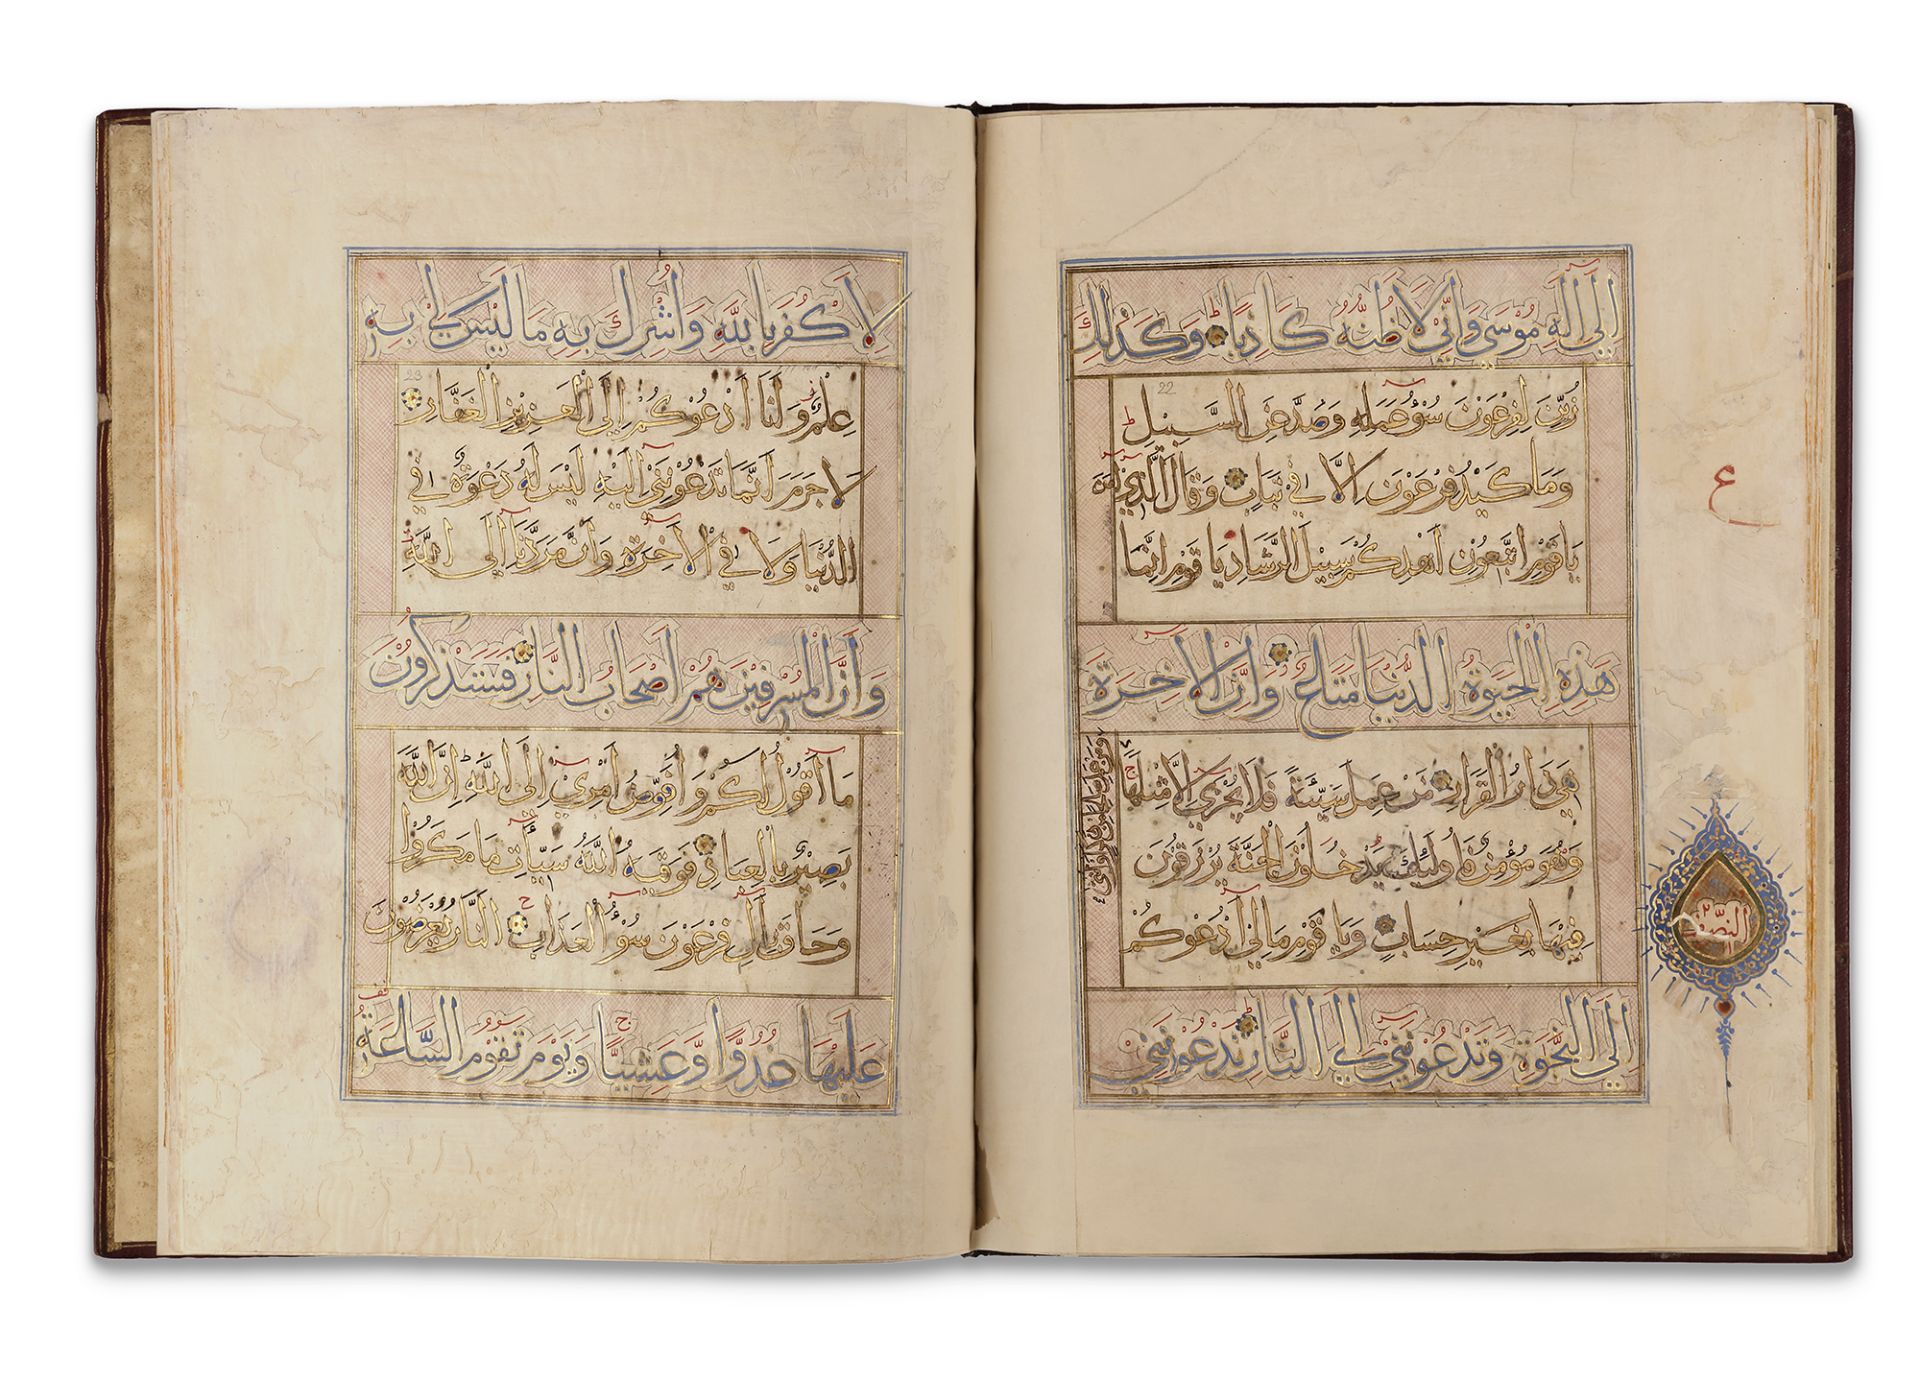 إلى إله موسى وإني لأظنه كاذبا وكذلك
22
زين لفرعون سوء عمله وصد عن السبيل
وما كيد فرعون إلا في تباب وقال الذي آمن
يا قوم اتبعون أهدكم سبيل الرشاد يا قوم إنما
هذه الحيوة الدنيا متاع وإن الآخرة
هي دار القرار من عمل سيئة فلا يجزى إلا مثلها
ومن عمل صالحا من ذكر أو أنثى
وهو مؤمن فأولئك يدخلون الجنة يرزقون
فيها بغير حساب ويا قوم مالي أدعوكم
إلى النجوة وتدعونني إلى النار تدعونني
ع
النصف
لأكفر بالله وأشرك به ما ليس لي به
23
علم وأنا أدعوكم إلى العزيز الغفار
لا جرم أنما تدعونني إليه ليس له دعوة في
الدنيا ولا في الآخرة وأن مردنا إلى الله
وأن المسرفين هم أصحاب النار فستذكرون
ما أقول لكم وأفوض أمري إلى الله إن الله
بصير بالعباد فوقيه الله سيئات ما مكروا
وحاق بآل فرعون سوء العذاب النار يعرضون
عليها غدوا وعشيا ويوم تقوم الساعة